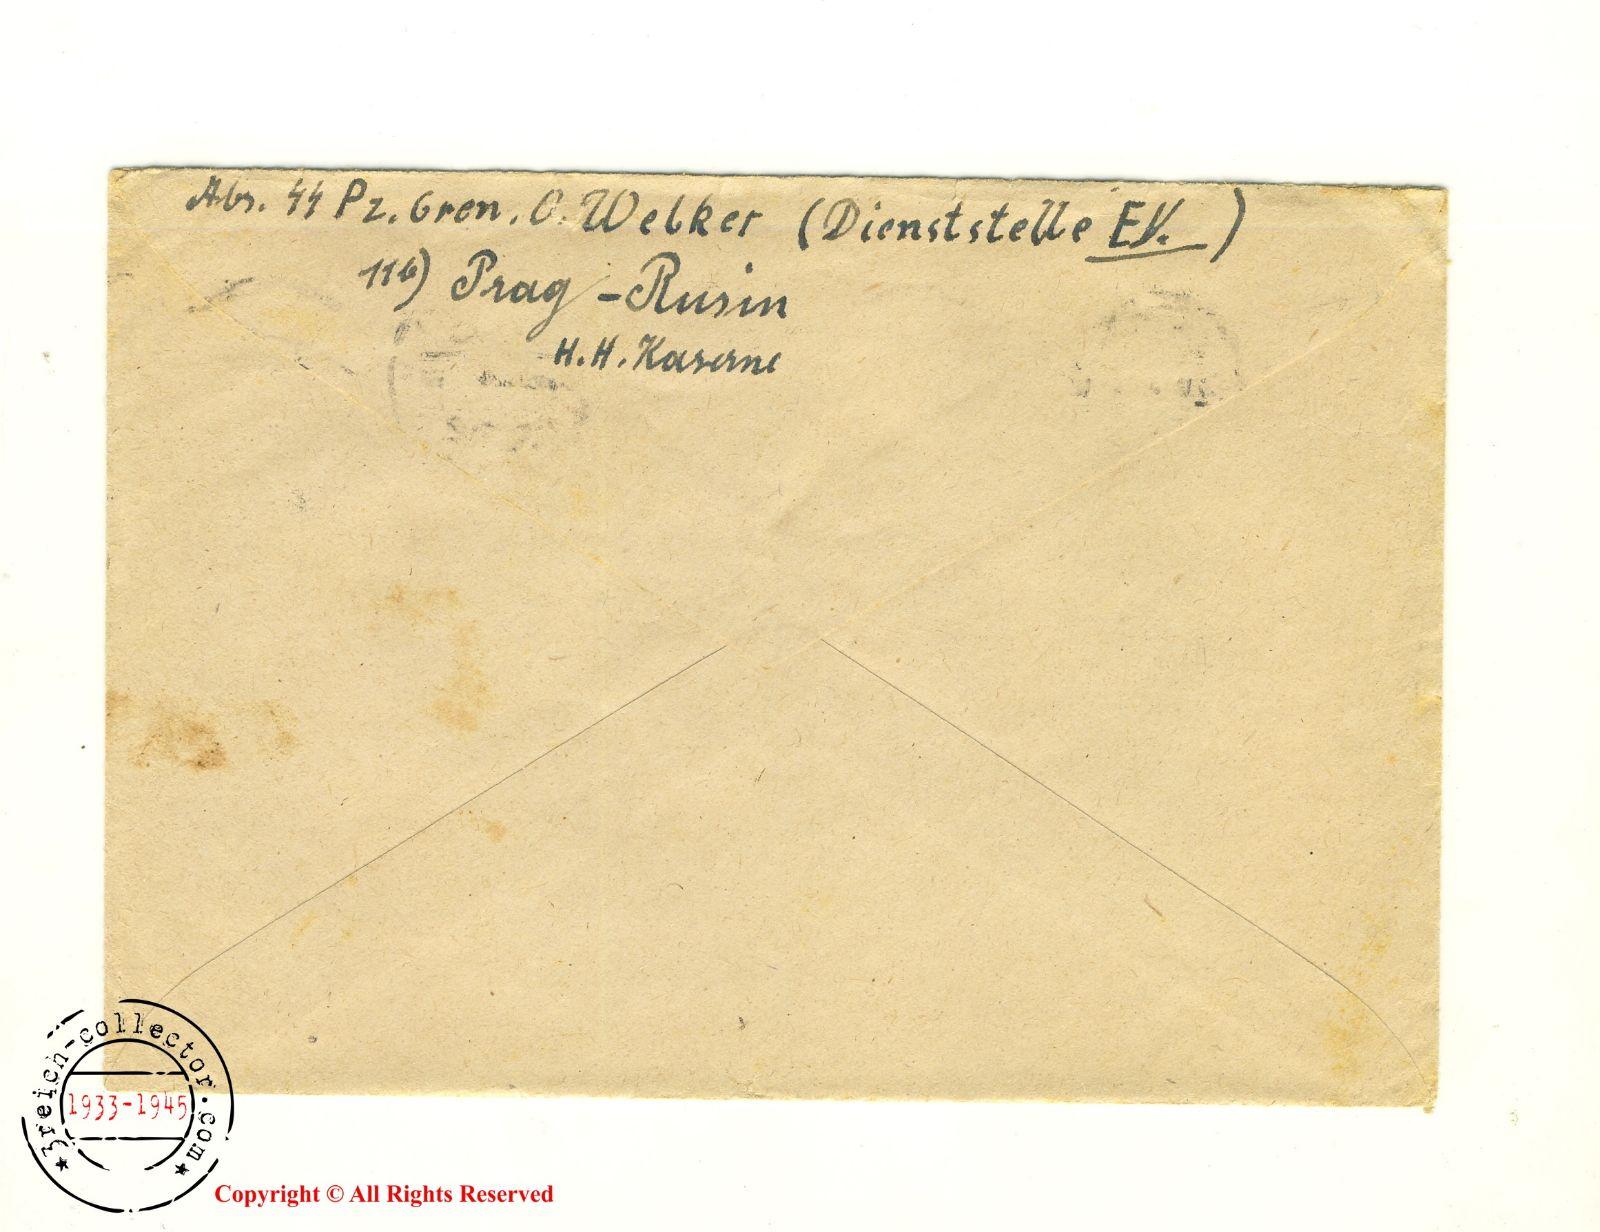 Abs. ᛋᛋ Pz. Gren. O. Welker (Dienststelle EV.)
11b) Prag - Rusin
H.H. Kaserne
3reich-collector.com
1933-1945
Copyright © All Rights Reserved